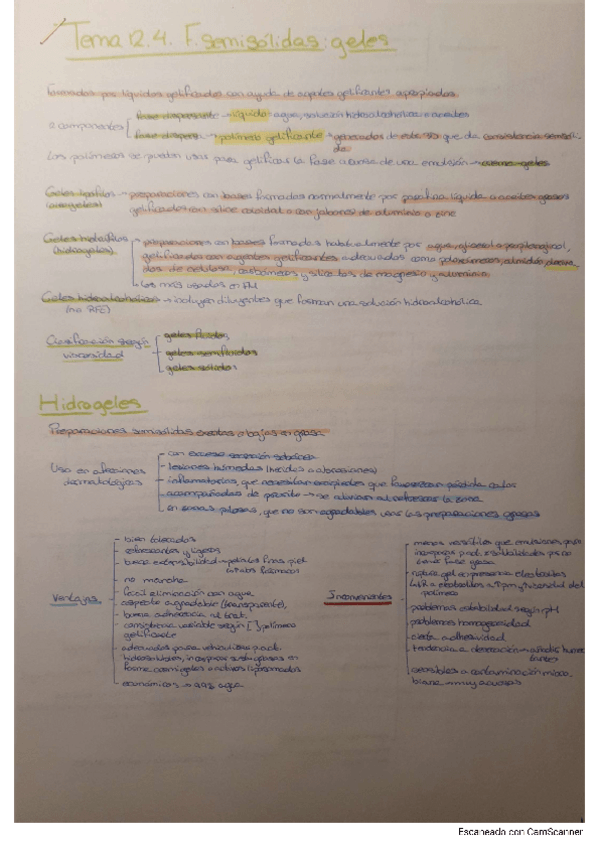 Tema 12.4. F. semisólidas: geles
Formados por líquidos gelificados con ayuda de agentes gelificantes apropiados.
2 componentes
fase dispersante → líquido: agua, solución hidroalcohólica o aceites
fase dispersa → polímero gelificante → generadores de estr. 3D que da consistencia semisólida
Los polímeros se pueden usar para gelificar la fase acuosa de una emulsión → creme-geles
Geles lipófilos → preparaciones con bases formadas normalmente por parafina líquida o aceites grasos
(oleogeles) gelificados con sílice coloidal o con jabones de aluminio o zinc
Geles hidrófilos → preparaciones con bases formadas habitualmente por agua, glicerol o propilenglicol,
(hidrogeles) gelificados con agentes gelificantes adecuados como poloxámeros, almidón, deriva
dos de celulosa, carbómeros y silicatos de magnesio y aluminio
Los más usados en FM
Geles hidroalcohólicos → incluyen diluyentes que forman una solución hidroalcohólica
(no RFE)
Clasificación según viscosidad
geles fluidos
geles semifluidos
geles sólidos
Hidrogeles
Preparaciones semisólidas exentas o bajas en grasa
Uso en afecciones dermatológicas
con exceso secreción sebácea
lesiones húmedas (heridas o abrasiones)
inflamatorias, que necesitan excipientes que favorezcan pérdida calor
acompañadas de prurito → se alivian al refrescar la zona
en zonas pilosas, que no son agradables usar las preparaciones grasas
Ventajas
bien tolerados
refrescantes y ligeros
buena extensibilidad → película fina piel
no mancha
fácil eliminación con agua
aspecto agradable (transparente),
buena adherencia al trat.
consistencia variable según [ ] polímero
gelificante
adecuados para vehiculizar p.act.
hidrosolubles, incorporar sustancias en
forma cosmigeles o activos liposomados
económicos → 99% agua
Inconvenientes
menos versátiles que emulsiones, para
incorporar p.act. + solubilidades pq no
tienen fase grasa
ruptura gel en presencia electrolitos
polímero
problemas estabilidad según pH
problemas homogeneidad
cierta adhesividad
tendencia a desecación → añadir humec
tantes
sensibles a contaminación micro
biana → muy acuosas
Escaneado con CamScanner